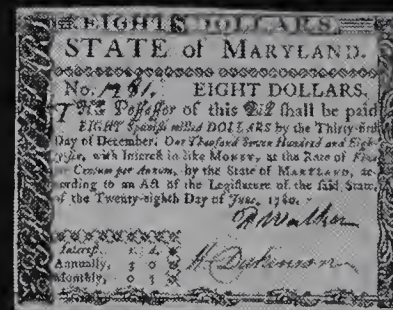 EIGHT DOLLARS.
STATE of MARYLAND.
No. 1781, EIGHT DOLLARS.
THE Poſſeſſor of this Bill ſhall be paid
EIGHT Spaniſh milled DOLLARS by the Thirty-firſt
Day of December, One Thouſand Seven Hundred and Eighty-
with Intereſt in like MONEY, at the Rate of Five
per Centum per Annum, by the State of MARYLAND, ac-
cording to an Act of the Legiſlature of the ſaid State,
of the Twenty-eighth Day of June, 1780.
Walker
Intereſt. s. d.
Annually, 3 0
Monthly, 0 3
H Dickinson